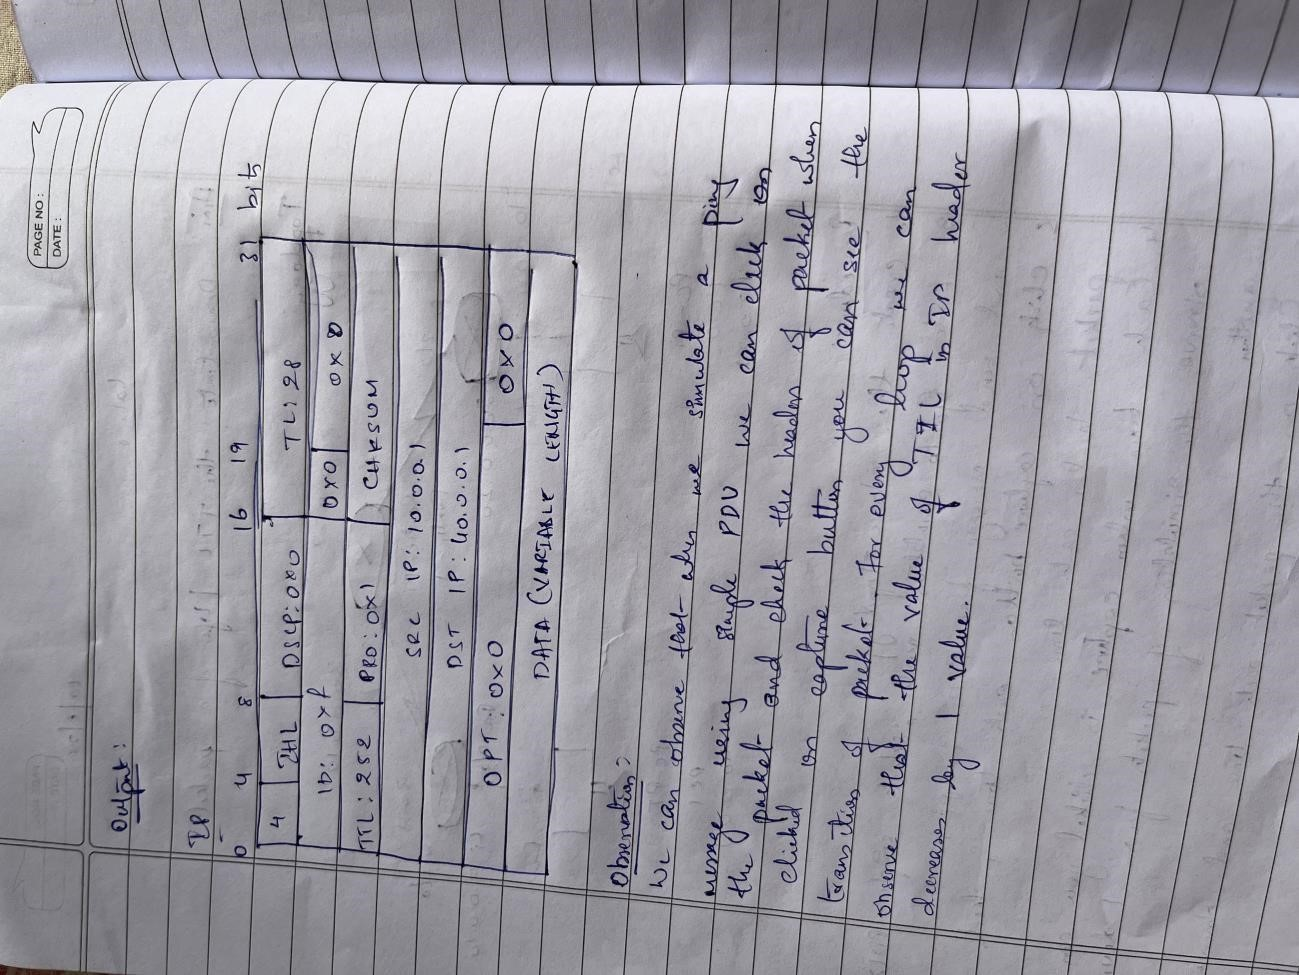 PAGE NO :
DATE :
Output :
IP
0 4 8 16 19 31 bits
4 IHL DSCP: 0x0 TL: 28
ID: 0xf 0x0 0x0
TTL: 252 PRO: 0x1 CHKSUM
SRC IP: 10.0.0.1
DST IP: 40.0.0.1
OPT: 0x0 0x0
DATA (VARIABLE LENGTH)
Observation :
We can observe that when we simulate a ping
message using simple PDU we can click on
the packet and check the headers of packet when
clicked on capture button you can see the
transition of packet. For every hop we can
observe that the value of TTL in IP header
decreases by 1 value.